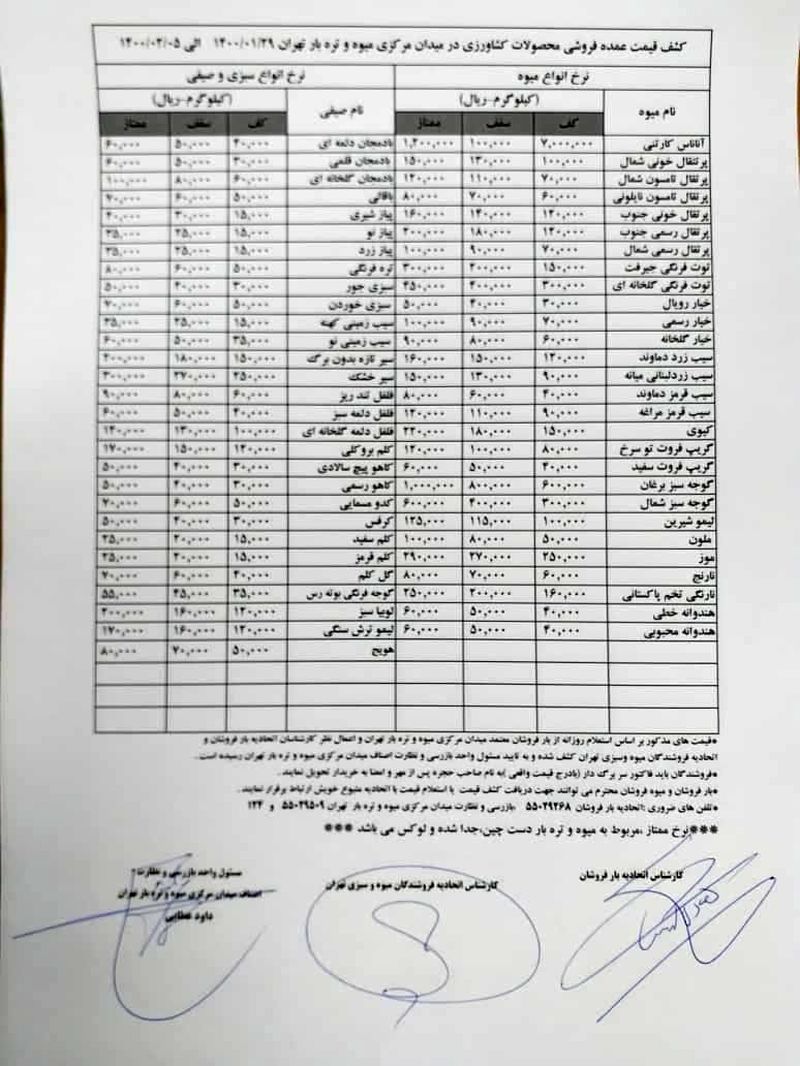 کشف قیمت عمده فروشی محصولات کشاورزی در میدان مرکزی میوه و تره بار تهران ۱۴۰۰/۰۱/۲۹ الی ۱۴۰۰/۰۲/۰۵
نرخ انواع میوه نرخ انواع سبزی و صیفی
نام میوه (کیلوگرم-ریال) نام صیفی (کیلوگرم-ریال)
کف سقف ممتاز کف سقف ممتاز
آناناس کارتنی ۷,۰۰۰,۰۰۰ ۱۰۰,۰۰۰ ۱,۲۰۰,۰۰۰ بادمجان دلمه ای ۴۰,۰۰۰ ۵۰,۰۰۰ ۶۰,۰۰۰
پرتنقال خونی شمال ۱۰۰,۰۰۰ ۱۳۰,۰۰۰ ۱۵۰,۰۰۰ بادمجان قلمی ۳۰,۰۰۰ ۵۰,۰۰۰ ۶۰,۰۰۰
پرتقال تامسون شمال ۷۰,۰۰۰ ۱۱۰,۰۰۰ ۱۴۰,۰۰۰ بادمجان گلخانه ای ۶۰,۰۰۰ ۸۰,۰۰۰ ۱۰۰,۰۰۰
پرتقال تامسون نایلونی ۶۰,۰۰۰ ۷۰,۰۰۰ ۸۰,۰۰۰ باقالی ۵۰,۰۰۰ ۶۰,۰۰۰ ۷۰,۰۰۰
پرتقال خونی جنوب ۱۲۰,۰۰۰ ۱۴۰,۰۰۰ ۱۶۰,۰۰۰ پیاز شیری ۱۵,۰۰۰ ۳۰,۰۰۰ ۴۰,۰۰۰
پرتقال رسمی جنوب ۱۴۰,۰۰۰ ۱۸۰,۰۰۰ ۲۰۰,۰۰۰ پیاز نو ۱۵,۰۰۰ ۲۵,۰۰۰ ۳۵,۰۰۰
پرتقال رسمی شمال ۷۰,۰۰۰ ۹۰,۰۰۰ ۱۰۰,۰۰۰ پیاز زرد ۱۵,۰۰۰ ۲۵,۰۰۰ ۳۵,۰۰۰
توت فرنگی جیرفت ۱۵۰,۰۰۰ ۲۰۰,۰۰۰ ۳۰۰,۰۰۰ تره فرنگی ۵۰,۰۰۰ ۶۰,۰۰۰ ۸۰,۰۰۰
توت فرنگی گلخانه ای ۳۰۰,۰۰۰ ۴۰۰,۰۰۰ ۴۵۰,۰۰۰ سبزی جور ۲۰,۰۰۰ ۳۰,۰۰۰ ۵۰,۰۰۰
خیار رویال ۳۰,۰۰۰ ۴۰,۰۰۰ ۵۰,۰۰۰ سبزی خوردن ۵۰,۰۰۰ ۶۰,۰۰۰ ۷۰,۰۰۰
خیار رسمی ۷۰,۰۰۰ ۹۰,۰۰۰ ۱۰۰,۰۰۰ سیب زمینی کهنه ۱۵,۰۰۰ ۲۵,۰۰۰ ۳۵,۰۰۰
خیار گلخانه ۶۰,۰۰۰ ۸۰,۰۰۰ ۹۰,۰۰۰ سیب زمینی نو ۳۵,۰۰۰ ۵۰,۰۰۰ ۶۰,۰۰۰
سیب زرد دماوند ۱۲۰,۰۰۰ ۱۵۰,۰۰۰ ۱۶۰,۰۰۰ سیر تازه بدون برگ ۱۵۰,۰۰۰ ۱۸۰,۰۰۰ ۲۰۰,۰۰۰
سیب زردلبنانی میانه ۹۰,۰۰۰ ۱۳۰,۰۰۰ ۱۵۰,۰۰۰ سیر خشک ۲۵۰,۰۰۰ ۲۷۰,۰۰۰ ۳۰۰,۰۰۰
سیب قرمز دماوند ۴۰,۰۰۰ ۶۰,۰۰۰ ۸۰,۰۰۰ فلفل تند ریز ۶۰,۰۰۰ ۸۰,۰۰۰ ۹۰,۰۰۰
سیب قرمز مراغه ۹۰,۰۰۰ ۱۱۰,۰۰۰ ۱۴۰,۰۰۰ فلفل دلمه سبز ۴۰,۰۰۰ ۵۰,۰۰۰ ۶۰,۰۰۰
کیوی ۱۵۰,۰۰۰ ۱۸۰,۰۰۰ ۲۲۰,۰۰۰ فلفل دلمه گلخانه ای ۱۰۰,۰۰۰ ۱۳۰,۰۰۰ ۱۴۰,۰۰۰
گریپ فروت تو سرخ ۸۰,۰۰۰ ۱۰۰,۰۰۰ ۱۲۰,۰۰۰ کلم بروکلی ۱۲۰,۰۰۰ ۱۵۰,۰۰۰ ۱۷۰,۰۰۰
گریپ فروت سفید ۴۰,۰۰۰ ۵۰,۰۰۰ ۶۰,۰۰۰ کاهو پیچ سالادی ۳۰,۰۰۰ ۴۰,۰۰۰ ۵۰,۰۰۰
گوجه سبز برغان ۶۰۰,۰۰۰ ۸۰۰,۰۰۰ ۱,۰۰۰,۰۰۰ کاهو رسمی ۳۰,۰۰۰ ۴۰,۰۰۰ ۵۰,۰۰۰
گوجه سبز شمال ۳۰۰,۰۰۰ ۴۰۰,۰۰۰ ۶۰۰,۰۰۰ کدو مسمایی ۵۰,۰۰۰ ۶۰,۰۰۰ ۷۰,۰۰۰
لیمو شیرین ۱۰۰,۰۰۰ ۱۱۵,۰۰۰ ۱۲۵,۰۰۰ کرفس ۳۰,۰۰۰ ۴۰,۰۰۰ ۵۰,۰۰۰
ملون ۵۰,۰۰۰ ۸۰,۰۰۰ ۱۰۰,۰۰۰ کلم سفید ۱۵,۰۰۰ ۲۰,۰۰۰ ۲۵,۰۰۰
موز ۲۵۰,۰۰۰ ۲۷۰,۰۰۰ ۲۹۰,۰۰۰ کلم قرمز ۱۵,۰۰۰ ۲۰,۰۰۰ ۲۵,۰۰۰
نارنج ۶۰,۰۰۰ ۷۰,۰۰۰ ۸۰,۰۰۰ گل کلم ۴۰,۰۰۰ ۶۰,۰۰۰ ۷۰,۰۰۰
نارنگی تخم پاکستانی ۱۶۰,۰۰۰ ۲۰۰,۰۰۰ ۲۵۰,۰۰۰ گوجه فرنگی بوته رس ۳۵,۰۰۰ ۴۵,۰۰۰ ۵۵,۰۰۰
هندوانه خطی ۴۰,۰۰۰ ۵۰,۰۰۰ ۶۰,۰۰۰ لوبیا سبز ۱۲۰,۰۰۰ ۱۶۰,۰۰۰ ۲۰۰,۰۰۰
هندوانه محبوبی ۴۰,۰۰۰ ۵۰,۰۰۰ ۶۰,۰۰۰ لیمو ترش سنگی ۱۲۰,۰۰۰ ۱۶۰,۰۰۰ ۱۷۰,۰۰۰
هویج ۵۰,۰۰۰ ۷۰,۰۰۰ ۸۰,۰۰۰
*قیمت های مذکور بر اساس استعلام روزانه از بار فروشان معتمد میدان مرکزی میوه و تره بار تهران و اعمال نظر کارشناسان اتحادیه بار فروشان و
اتحادیه فروشندگان میوه وسبزی تهران کشف شده و به تایید مسئول واحد بازرسی و نظارت اصناف میدان مرکزی میوه و تره بار تهران رسیده است .
*فروشندگان باید فاکتور سر برگ دار (بادرج قیمت واقعی )به نام صاحب حجره پس از مهر و امضا به خریدار تحویل نمایند .
*بار فروشان و میوه فروشان محترم می توانند جهت دریافت کشف قیمت یا استعلام قیمت با اتحادیه متبوع خویش ارتباط برقرار نمایند .
*تلفن های ضروری :اتحادیه بار فروشان ۵۵۰۲۹۲۶۸ ،بازرسی و نظارت میدان مرکزی میوه و تره بار تهران ۵۵۰۲۹۵۰۹ و ۱۲۴
***نرخ ممتاز ،مربوط به میوه و تره بار دست چین،جدا شده و لوکس می باشد ***
کارشناس اتحادیه بار فروشان
کارشناس اتحادیه فروشندگان میوه و سبزی تهران
مسئول واحد بازرسی و نظارت
اصناف میدان مرکزی میوه و تره بار تهران
داود عطایی